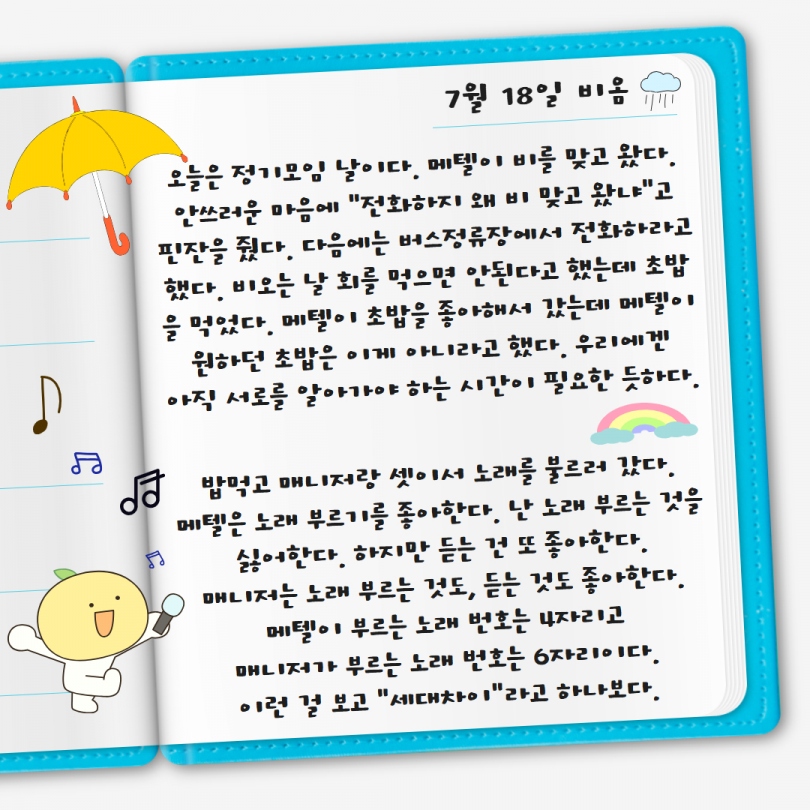 7월 18일 비옴
오늘은 정기모임 날이다. 메텔이 비를 맞고 왔다.
안쓰러운 마음에 "전화하지 왜 비 맞고 왔냐"고
핀잔을 줬다. 다음에는 버스정류장에서 전화하라고
했다. 비오는 날 회를 먹으면 안된다고 했는데 초밥
을 먹었다. 메텔이 초밥을 좋아해서 갔는데 메텔이
원하던 초밥은 이게 아니라고 했다. 우리에겐
아직 서로를 알아가야 하는 시간이 필요한 듯하다.
밥먹고 매니저랑 셋이서 노래를 불르러 갔다.
메텔은 노래 부르기를 좋아한다. 난 노래 부르는 것을
싫어한다. 하지만 듣는 건 또 좋아한다.
매니저는 노래 부르는 것도, 듣는 것도 좋아한다.
메텔이 부르는 노래 번호는 4자리고
매니저가 부르는 노래 번호는 6자리이다.
이런 걸 보고 "세대차이"라고 하나보다.